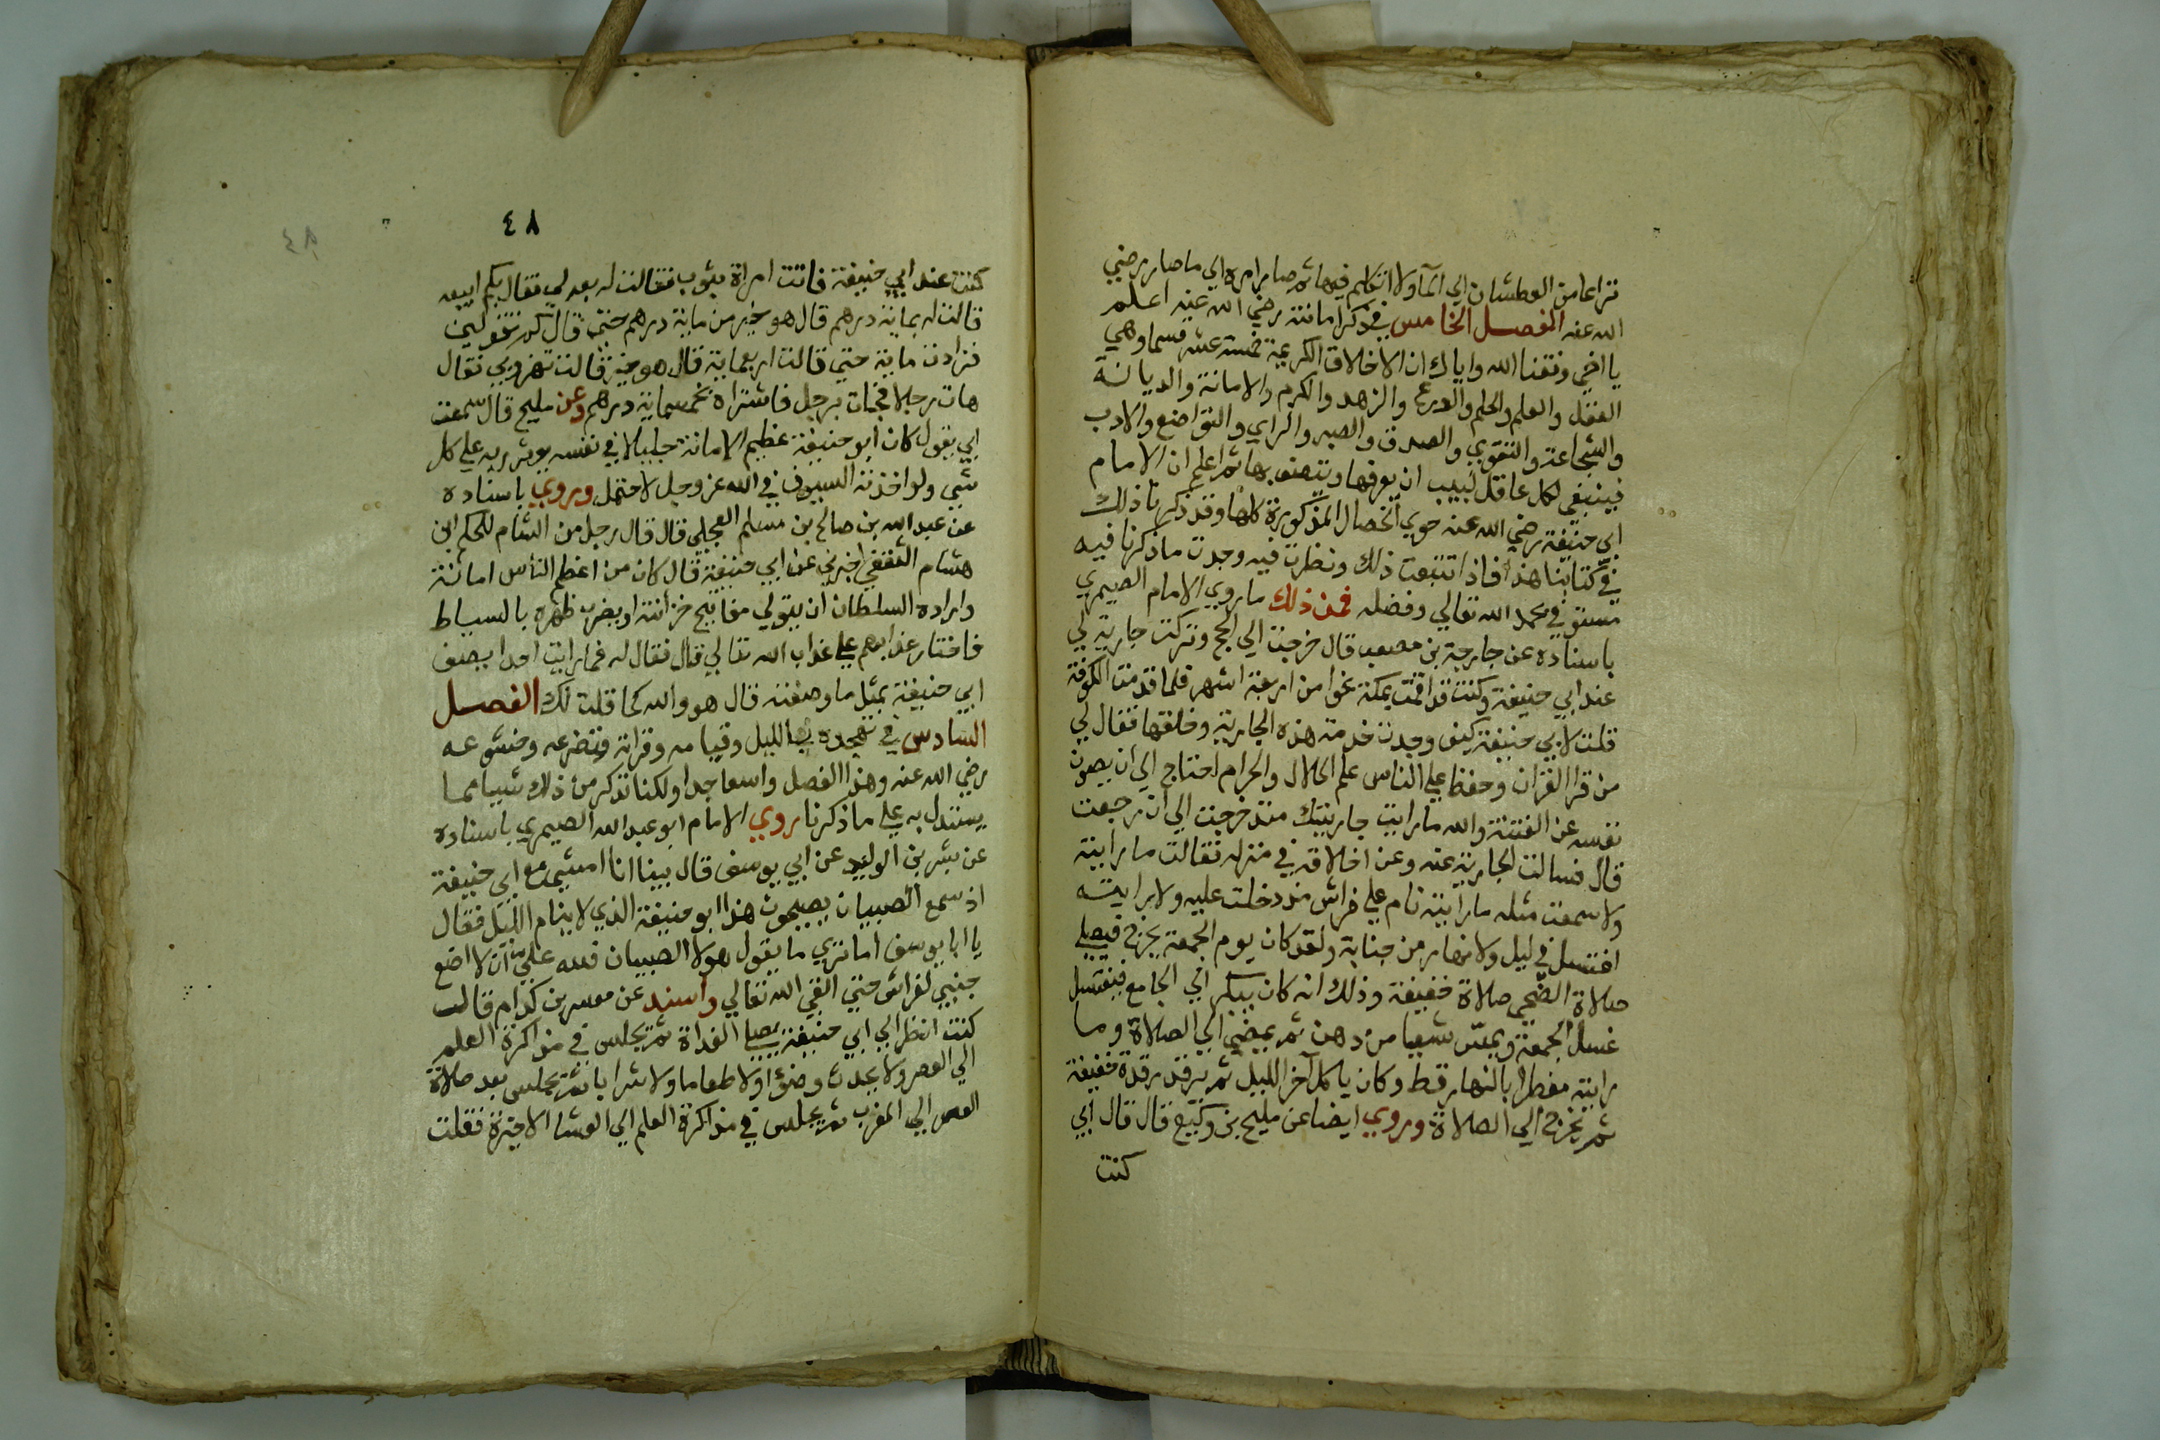 نزاعا من العطشان الي الماء ولا اتكلم فيها ثم صار امره الي ما صار رضي
الله عنه الفصل الخامس في ذكر امانته رضي الله عنه اعلم
يا اخي وفقنا الله واياك ان الاخلاق الكريمة خمسة عشر قسما وهي
العقل والعلم والحلم والورع والزهد والكرم والامانة والديانة
والشجاعة والتقوي والصدق والصبر والراي والتواضع والادب
فينبغي لكل عاقل لبيب ان يعرفها ويتصف بها ثم اعلم ان الامام
ابي حنيفة رضي الله عنه حوي الخصال المذكورة كلها وقد ذكرنا ذلك
في كتابنا هذا فاذا تتبعت ذلك ونظرت فيه وجدت ما ذكرنا فيه
مستوفي بحمد الله تعالي وفضله فمن ذلك ما روي الامام الصيمري
باسناده عن خارجة بن مصعب قال خرجت الي الحج وتركت جارية لي
عند ابي حنيفة وكنت قد اقمت بمكة نحوا من اربعة اشهر فلما قدمت الكوفة
قلت لابي حنيفة كيف وجدت خدمة هذه الجارية وخلقها فقال لي
من قرا القران وحفظ علي الناس علم الحلال والحرام احتاج الي ان يصون
نفسه عن الفتنة والله ما رايت جاريتك منذ خرجت الي ان رجعت
قال فسالت الجارية عنه وعن اخلاقه في منزله فقالت ما رايته
ولا سمعت مثله ما رايته نام علي فراش منذ دخلت عليه ولا رايته
اغتسل في ليل ولا نهار من جنابة ولقد كان يوم الجمعة يخرج فيصلي
صلاة الضحي صلاة خفيفة وذلك انه كان يبكر الي الجامع فيغتسل
غسل الجمعة ويمس شيا من دهن ثم يمضي الي الصلاة وما
رايته مفطرا بالنهار قط وكان ياكل آخر الليل ثم يرقد رقدة خفيفة
ثم يخرج الي الصلاة وروي ايضا عن مليح بن وكيع قال قال ابي
كنت
٤٨
٤٨
كنت عند ابي حنيفة فاتت امراة بثوب فقالت له بعه لي فقال بكم ابيعه
قالت له بماية درهم قال هو خير من ماية درهم حتي قال كم تقولين
فزادت ماية حتي قالت اربعماية قال هو خير قالت تهزو بي فقال
هات رجلا فجات برجل فاشتراه بخمسماية درهم وعن مليح قال سمعت
ابي يقول كان ابو حنيفة عظيم الامانة جليلا في نفسه يوثر ربه علي كل
شي ولو اخذته السيوف في الله عز وجل لاحتمل وروي باسناده
عن عبد الله بن صالح بن مسلم العجلي قال قال رجل من الشام للحكم ابن
هشام الثقفي اخبرني عن ابي حنيفة قال كان من اعظم الناس امانة
واراده السلطان ان يتولي مفاتيح خزائنه او يضرب ظهره بالسياط
فاختار عذابهم علي عذاب الله تعالي قال فقال له فما رايت احدا يصف
ابي حنيفة بمثل ما وصفته قال هو والله كما قلت لك الفصل
السادس في تهجده بالليل وقيامه وقراته وتضرعه وخشوعه
رضي الله عنه وهذا الفصل واسعا جدا ولكنا نذكر من ذلك شيا مما
يستدل به علي ما ذكرنا روي الامام ابو عبد الله الصيمري باسناده
عن بشر بن الوليد عن ابي يوسف قال بينا انا امشي مع ابي حنيفة
اذ سمع الصبيان يصيحون هذا ابو حنيفة الذي لا ينام الليل فقال
يا ابا يوسف اما تري ما يقول هولا الصبيان فلله علي ان لا اضع
جنبي لفراش حتي القي الله تعالي واسند عن مسعر بن كدام قالت
كنت انظر الي ابي حنيفة يصلي الغداة ثم يجلس في مذاكرة العلم
الي العصر ولا يحدث وضوءا ولا طعاما ولا شرابا ثم يجلس بعد صلاة
العصر الي المغرب ثم يجلس في مذاكرة العلم الي العشا الاخيرة فقلت